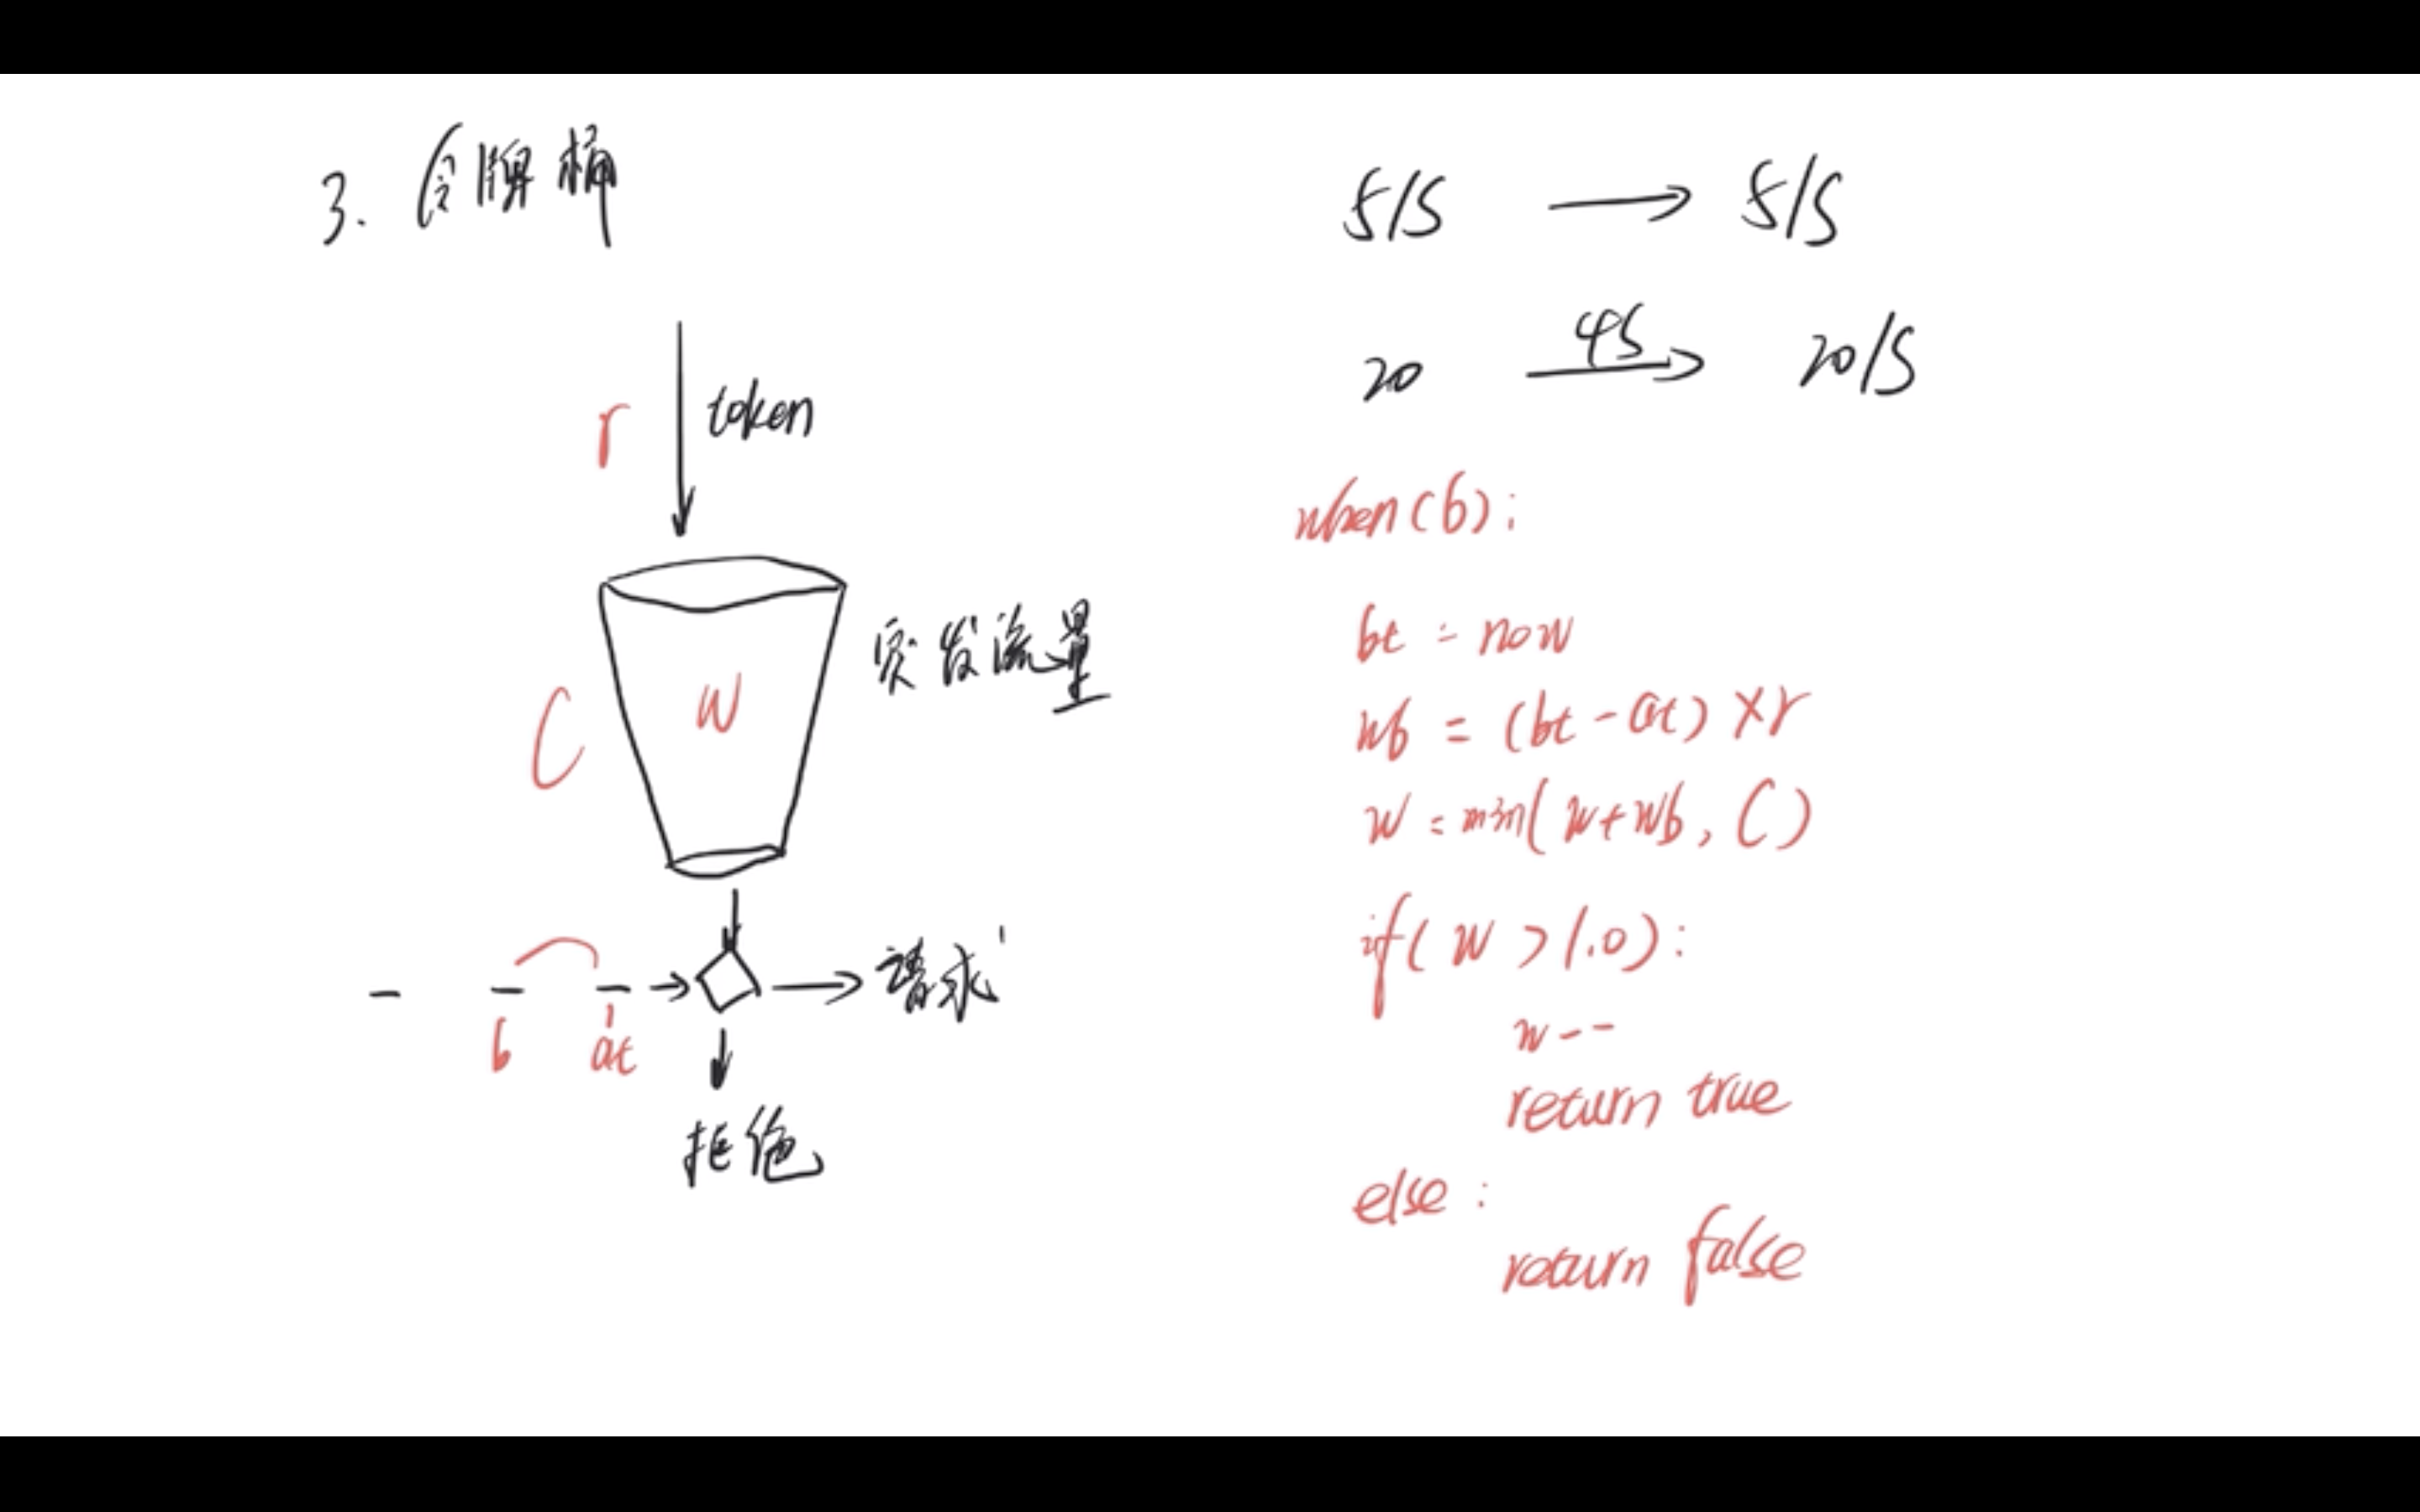 3. 令牌桶
r
token
C
W
突发流量
b
at
请求
拒绝
5/s → 5/s
20 4s → 20/s
when(b):
bt = now
wb = (bt - at) × r
w = min(w+wb, C)
if(w > 1.0):
w--
return true
else:
return false